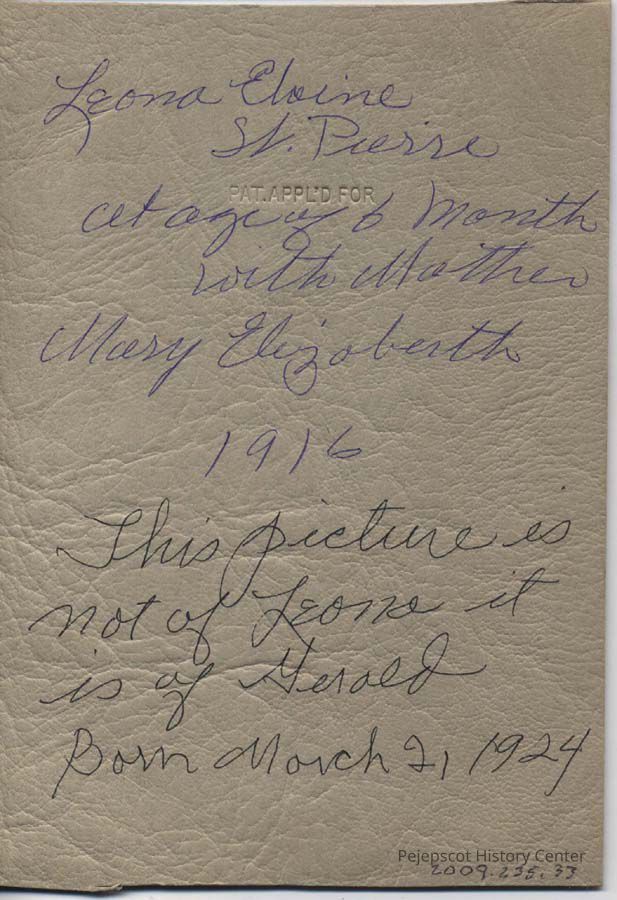 Leona Elaine
St. Pierre
PAT. APPL'D FOR
at age of 6 Month
with Mother
Mary Elizabeth
1916
This picture is
not of Leona it
is of Gerald
Born March 21, 1924
Pejepscot History Center
2009.235.33